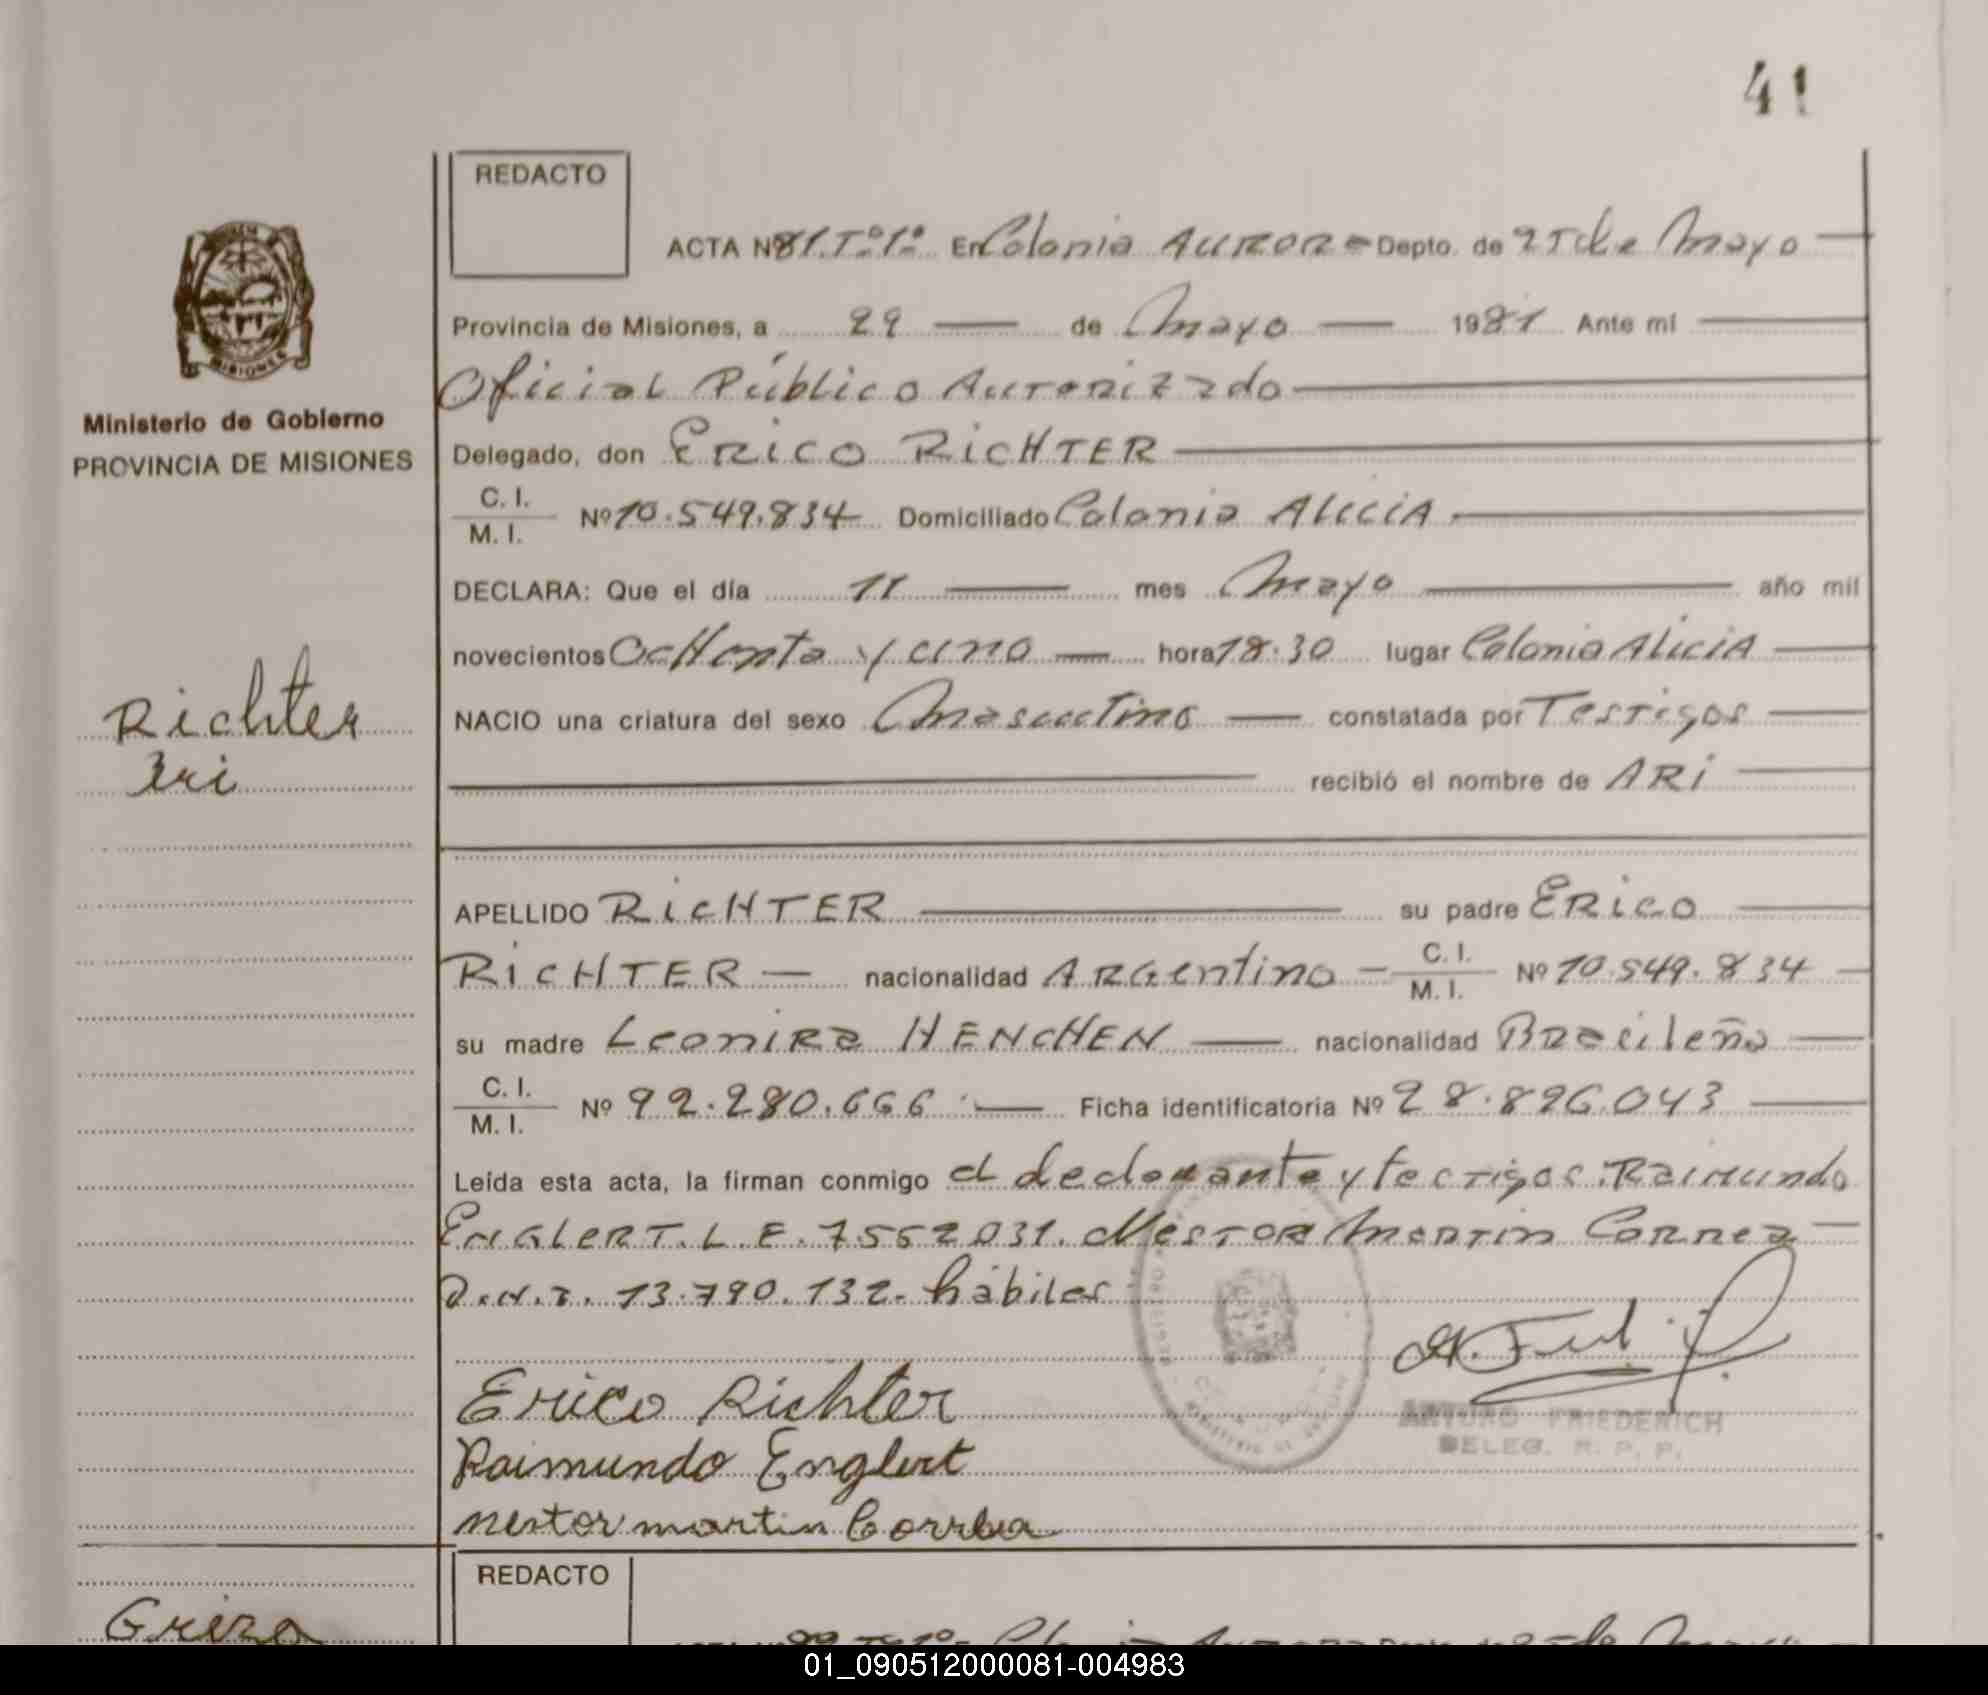 41
REDACTO
ACTA Nº 81.Tº1º En Colonia AURORA Depto. de 25 de Mayo
Provincia de Misiones, a 29 de Mayo 1981 Ante mi
Oficial Público Autorizado
Ministerio de Gobierno
PROVINCIA DE MISIONES
Delegado, don ERICO RICHTER
C. I.
M. I. Nº 10.549.834 Domiciliado Colonia ALICIA
DECLARA: Que el día 11 mes Mayo año mil
novecientos Ochenta y uno hora 18.30 lugar Colonia ALICIA
Richter
Ari
NACIO una criatura del sexo Masculino constatada por Testigos
recibió el nombre de ARI
APELLIDO RICHTER su padre ERICO
RICHTER nacionalidad ARGentino C. I. M. I. Nº 10.549.834
su madre Leonira HENCHEN nacionalidad Brasileña
C. I.
M. I. Nº 92.280.666 Ficha identificatoria Nº 28.896.043
Leída esta acta, la firman conmigo el declarante y testigos. Raimundo
ENGLERT. L. E. 7552031. Nestor Martin Correa
D.N.I. 13.790.132. hábiles
Erico Richter
Raimundo Englert
nestor martin Correa
ARTURO FRIEDERICH
DELEG. R. P. P.
REDACTO
01_090512000081-004983